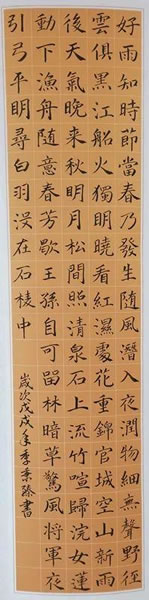 好雨知時節當春乃發生随風潛入夜潤物細無聲野徑
雲俱黑江船火獨明曉看紅濕處花重錦官城空山新雨
後天氣晚來秋明月松間照清泉石上流竹喧歸浣女蓮
動下漁舟随意春芳歇王孫自可留林暗草驚風將軍夜
引弓平明尋白羽没在石棱中
歲次戊戌年季書